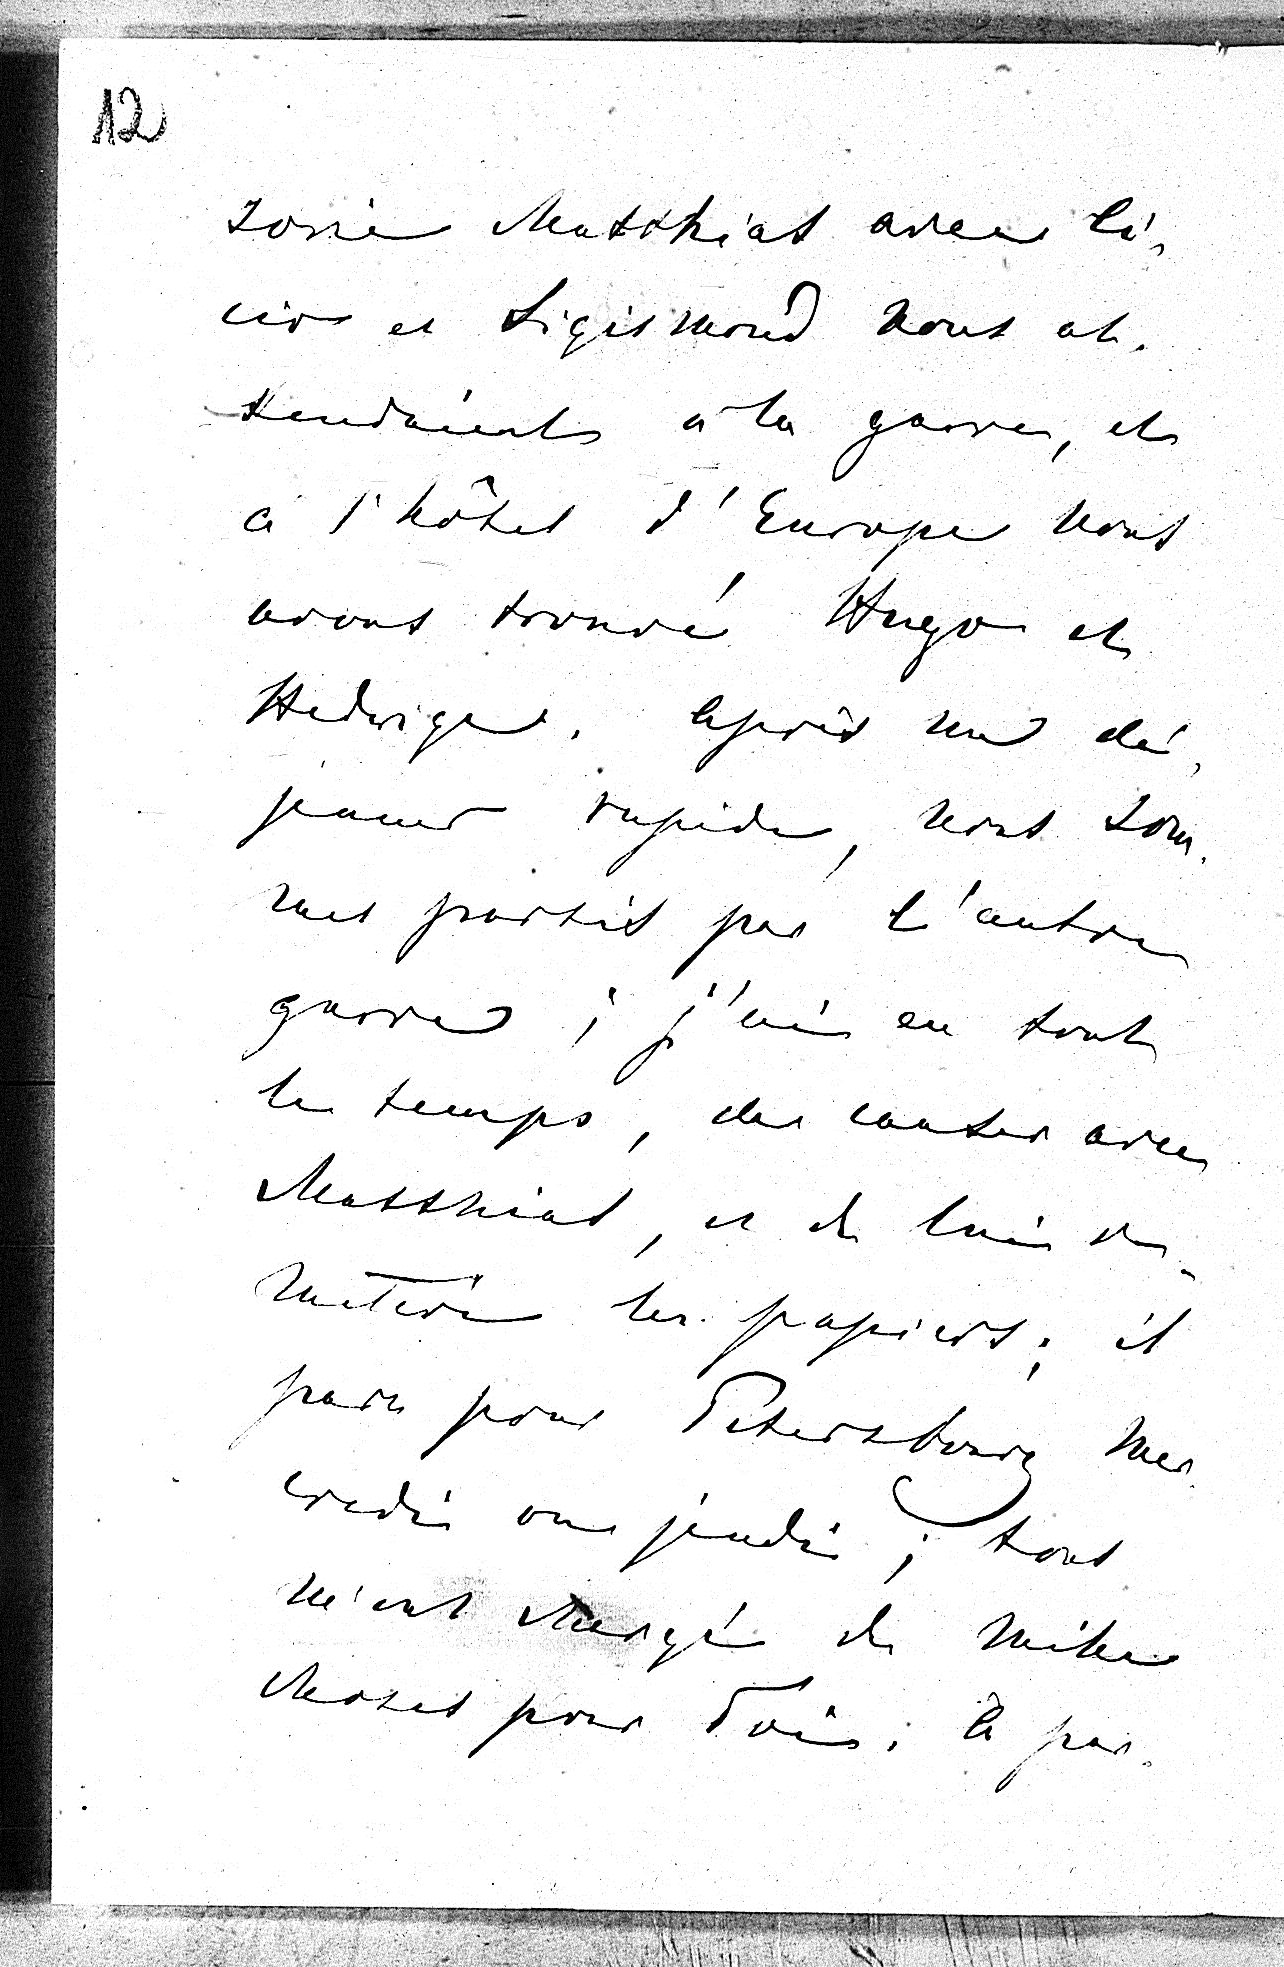 12
sovie Matthias avec Lé-
cio et Sigismond nous at-
tendaient à la garre, et
à l'hôtel d'Europe nous
avons trouvé Hugo et
Hedwige. Après un dé-
jeuner rapide, nous som-
mes partis par l'autre
garre ; j'ai eu tout
le temps, de causer avec
Matthias, et de lui re-
mettre les papiers ; il
part pour Petersbourg Mer-
credi ou jeudi ; tous
m'ont chargé de mille
choses pour Toi ; à par-